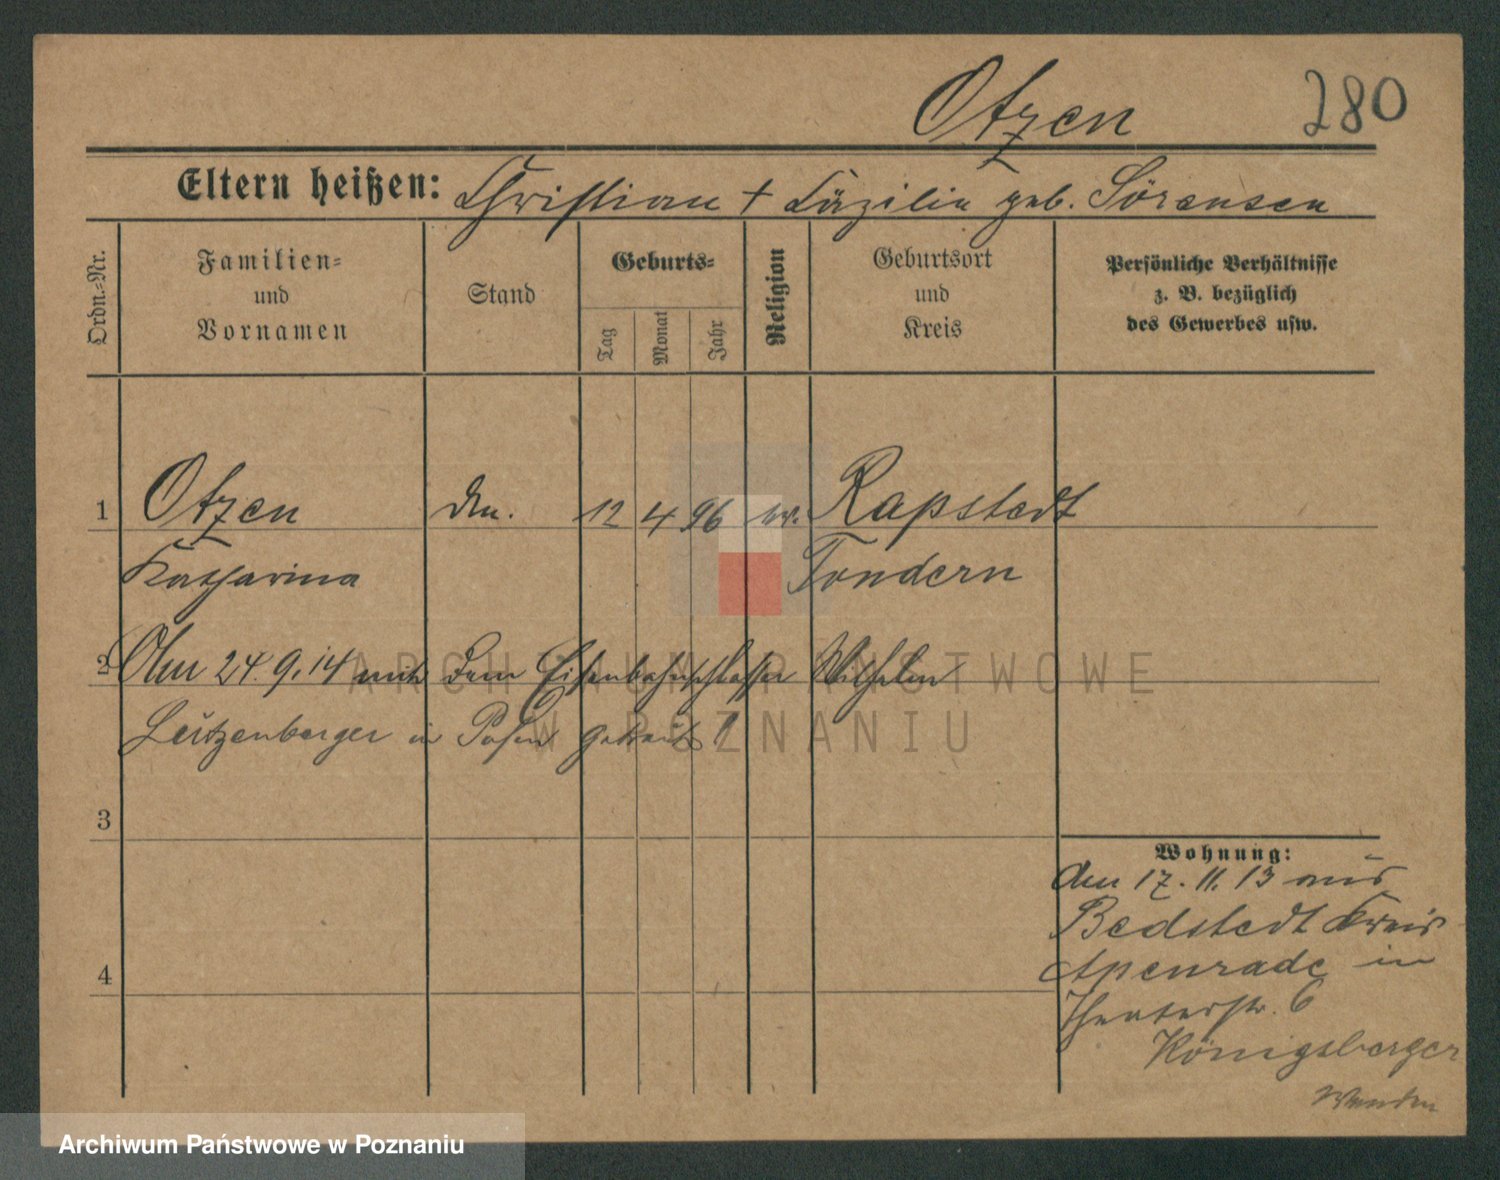 Otzen 280
Eltern heißen: Christian + Cäzilie geb. Sörensen
Ordn.-Nr.
Familien-
und
Vornamen
Stand
Geburts-
Tag
Monat
Jahr
Religion
Geburtsort
und
Kreis
Persönliche Verhältnisse
z. B. bezüglich
des Gewerbes usw.
1 Otzen 12 4 96 ev. Rapstedt
Katharina Tondern
2 Am 24.9.14 mit dem Eisenbahnschlosser Wilhelm
Leitzenberger in Posen getraut
3
Wohnung:
Am 17.11.13 aus
Bedstedt Kreis
4 Apenrade in
Theaterstr. 6
Königsberger
Wenden
ARCHIWUM PAŃSTWOWE
W POZNANIU
Archiwum Państwowe w Poznaniu